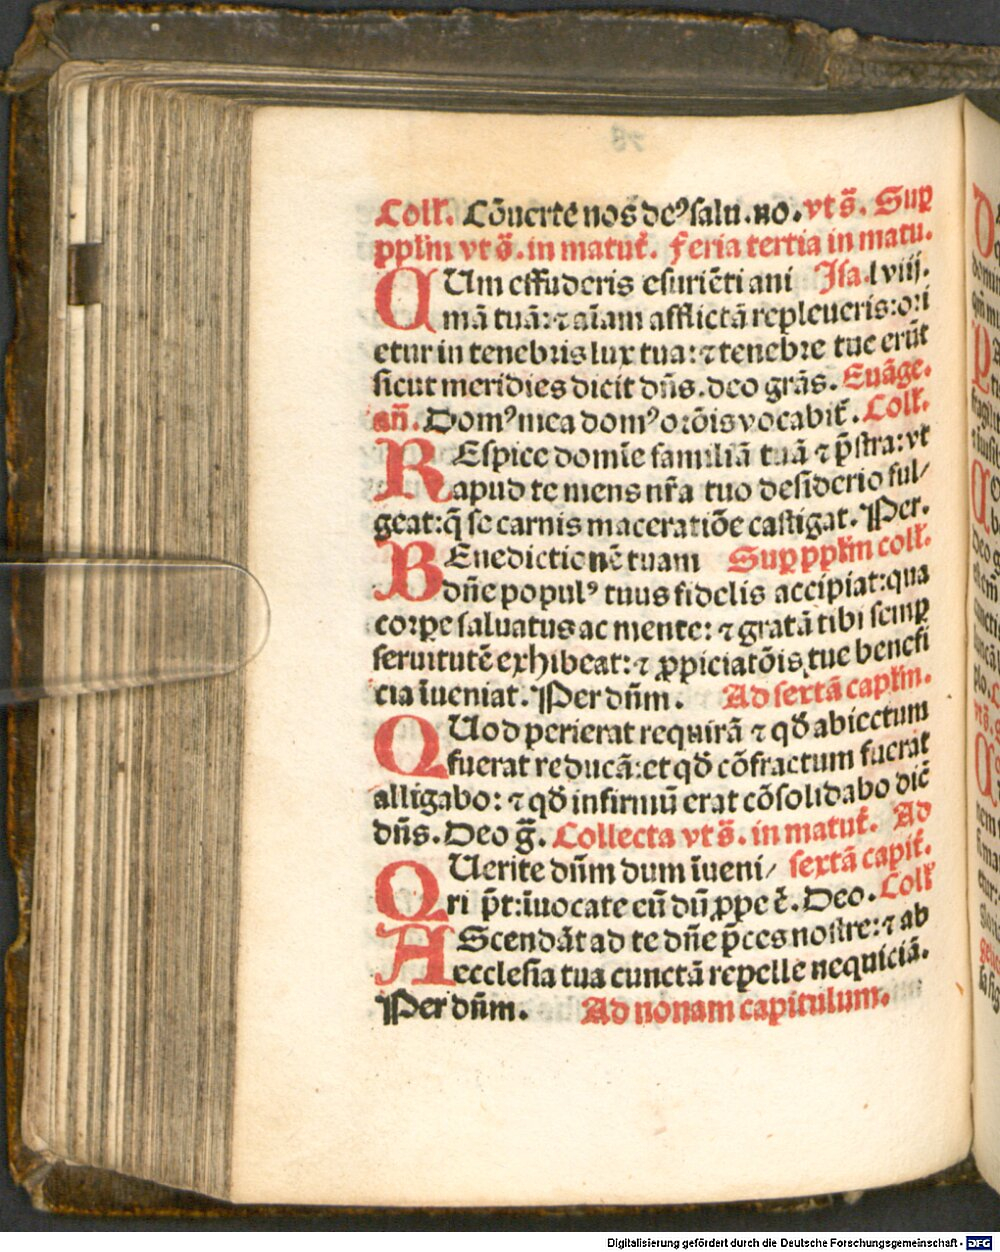 Coll̄. Cōuerte nos de⁹ salu. no. vt s̄. Suꝑ
pplm̄ vt s̄. in matut̄. Feria tertia in matu.
CUm effuderis esuriēti ani Isa. lviij.
mā tuā: ⁊ aīam afflictā repleueris: ori
etur in tenebris lux tua: ⁊ tenebre tue erūt
sicut meridies dicit dn̄s. deo grās. Euāge.
an̄. Dom⁹ mea dom⁹ orōis vocabit̄. Coll̄.
REspice domīe familiā tuā ⁊ p̄stra: vt
apud te mens nr̄a tuo desiderio ful/
geat: q̄ se carnis maceratiōe castigat. Per.
BEnedictionē tuam Suꝑ pplm̄ coll̄.
dn̄e popul⁹ tuus fidelis accipiat: qua
corꝑe saluatus ac mente: ⁊ gratā tibi semꝑ
seruitutē exhibeat: ⁊ ꝓpiciatōis tue benefi
cia īueniat. Per dn̄m. Ad sextā caplm̄.
QUod perierat requirā ⁊ qd̄ abiectum
fuerat reducā: et qd̄ cōfractum fuerat
alligabo: ⁊ qd̄ infirmū erat cōsolidabo dic̄
dn̄s. Deo ḡ. Collecta vt s̄. in matut̄. Ad
QUerite dn̄m dum īueni/ sextā capit̄.
ri p̄t: īuocate eū dū ꝓpe ē. Deo. Coll̄
AScendāt ad te dn̄e p̄ces nostre: ⁊ ab
ecclesia tua cunctā repelle nequiciā.
Per dn̄m. Ad nonam capitulum.
Digitalisierung gefördert durch die Deutsche Forschungsgemeinschaft - DFG